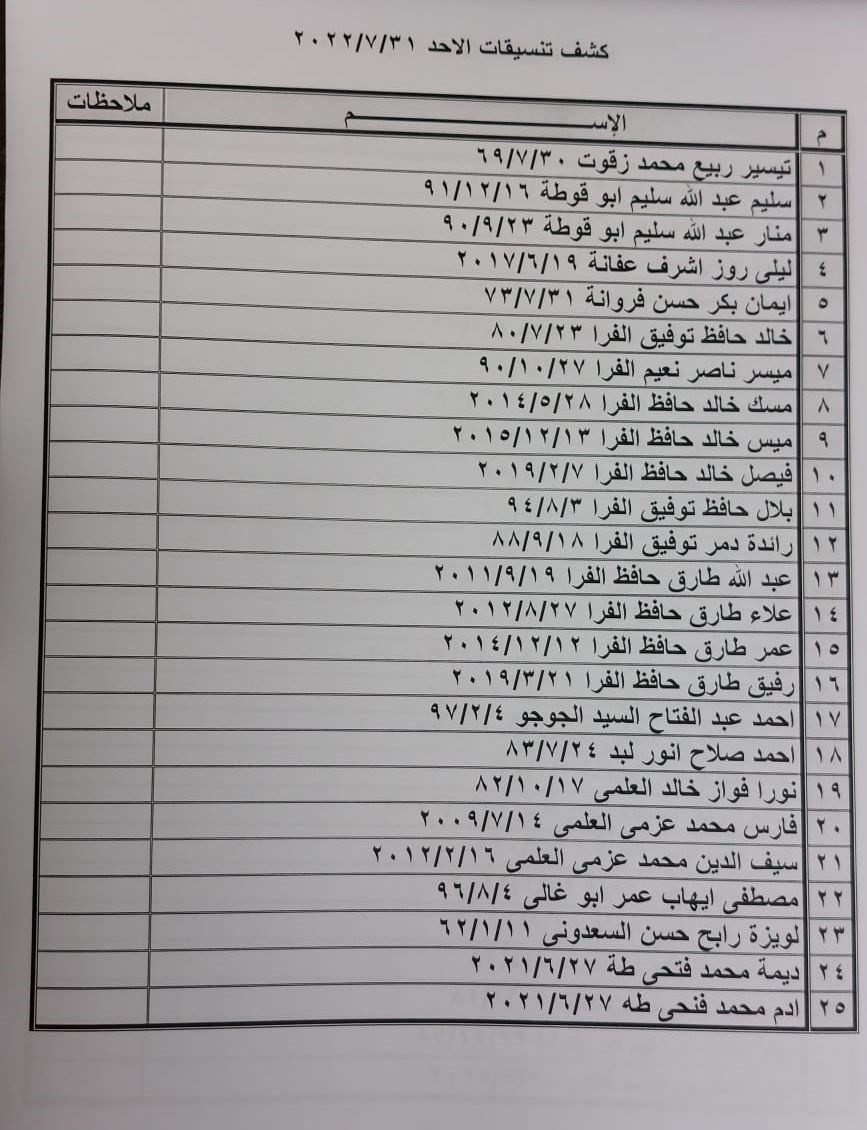 كشف تنسيقات الاحد ٢٠٢٢/٧/٣١
م الإســـــم ملاحظات
١ تيسير ربيع محمد زقوت ٦٩/٧/٣٠
٢ سليم عبد الله سليم ابو قوطة ٩١/١٢/١٦
٣ منار عبد الله سليم ابو قوطة ٩٠/٩/٢٣
٤ ليلى روز اشرف عفانة ٢٠١٧/٦/١٩
٥ ايمان بكر حسن فروانة ٧٣/٧/٣١
٦ خالد حافظ توفيق الفرا ٨٠/٧/٢٣
٧ ميسر ناصر نعيم الفرا ٩٠/١٠/٢٧
٨ مسك خالد حافظ الفرا ٢٠١٤/٥/٢٨
٩ ميس خالد حافظ الفرا ٢٠١٥/١٢/١٣
١٠ فيصل خالد حافظ الفرا ٢٠١٩/٢/٧
١١ بلال حافظ توفيق الفرا ٩٤/٨/٣
١٢ رائدة دمر توفيق الفرا ٨٨/٩/١٨
١٣ عبد الله طارق حافظ الفرا ٢٠١١/٩/١٩
١٤ علاء طارق حافظ الفرا ٢٠١٢/٨/٢٧
١٥ عمر طارق حافظ الفرا ٢٠١٤/١٢/١٢
١٦ رفيق طارق حافظ الفرا ٢٠١٩/٣/٢١
١٧ احمد عبد الفتاح السيد الجوجو ٩٧/٢/٤
١٨ احمد صلاح انور لبد ٨٣/٧/٢٤
١٩ نورا فواز خالد العلمى ٨٢/١٠/١٧
٢٠ فارس محمد عزمى العلمى ٢٠٠٩/٧/١٤
٢١ سيف الدين محمد عزمى العلمى ٢٠١٢/٢/١٦
٢٢ مصطفى ايهاب عمر ابو غالى ٩٦/٨/٤
٢٣ لويزة رابح حسن السعدونى ٦٢/١/١١
٢٤ ديمة محمد فتحى طة ٢٠٢١/٦/٢٧
٢٥ ادم محمد فنحى طه ٢٠٢١/٦/٢٧